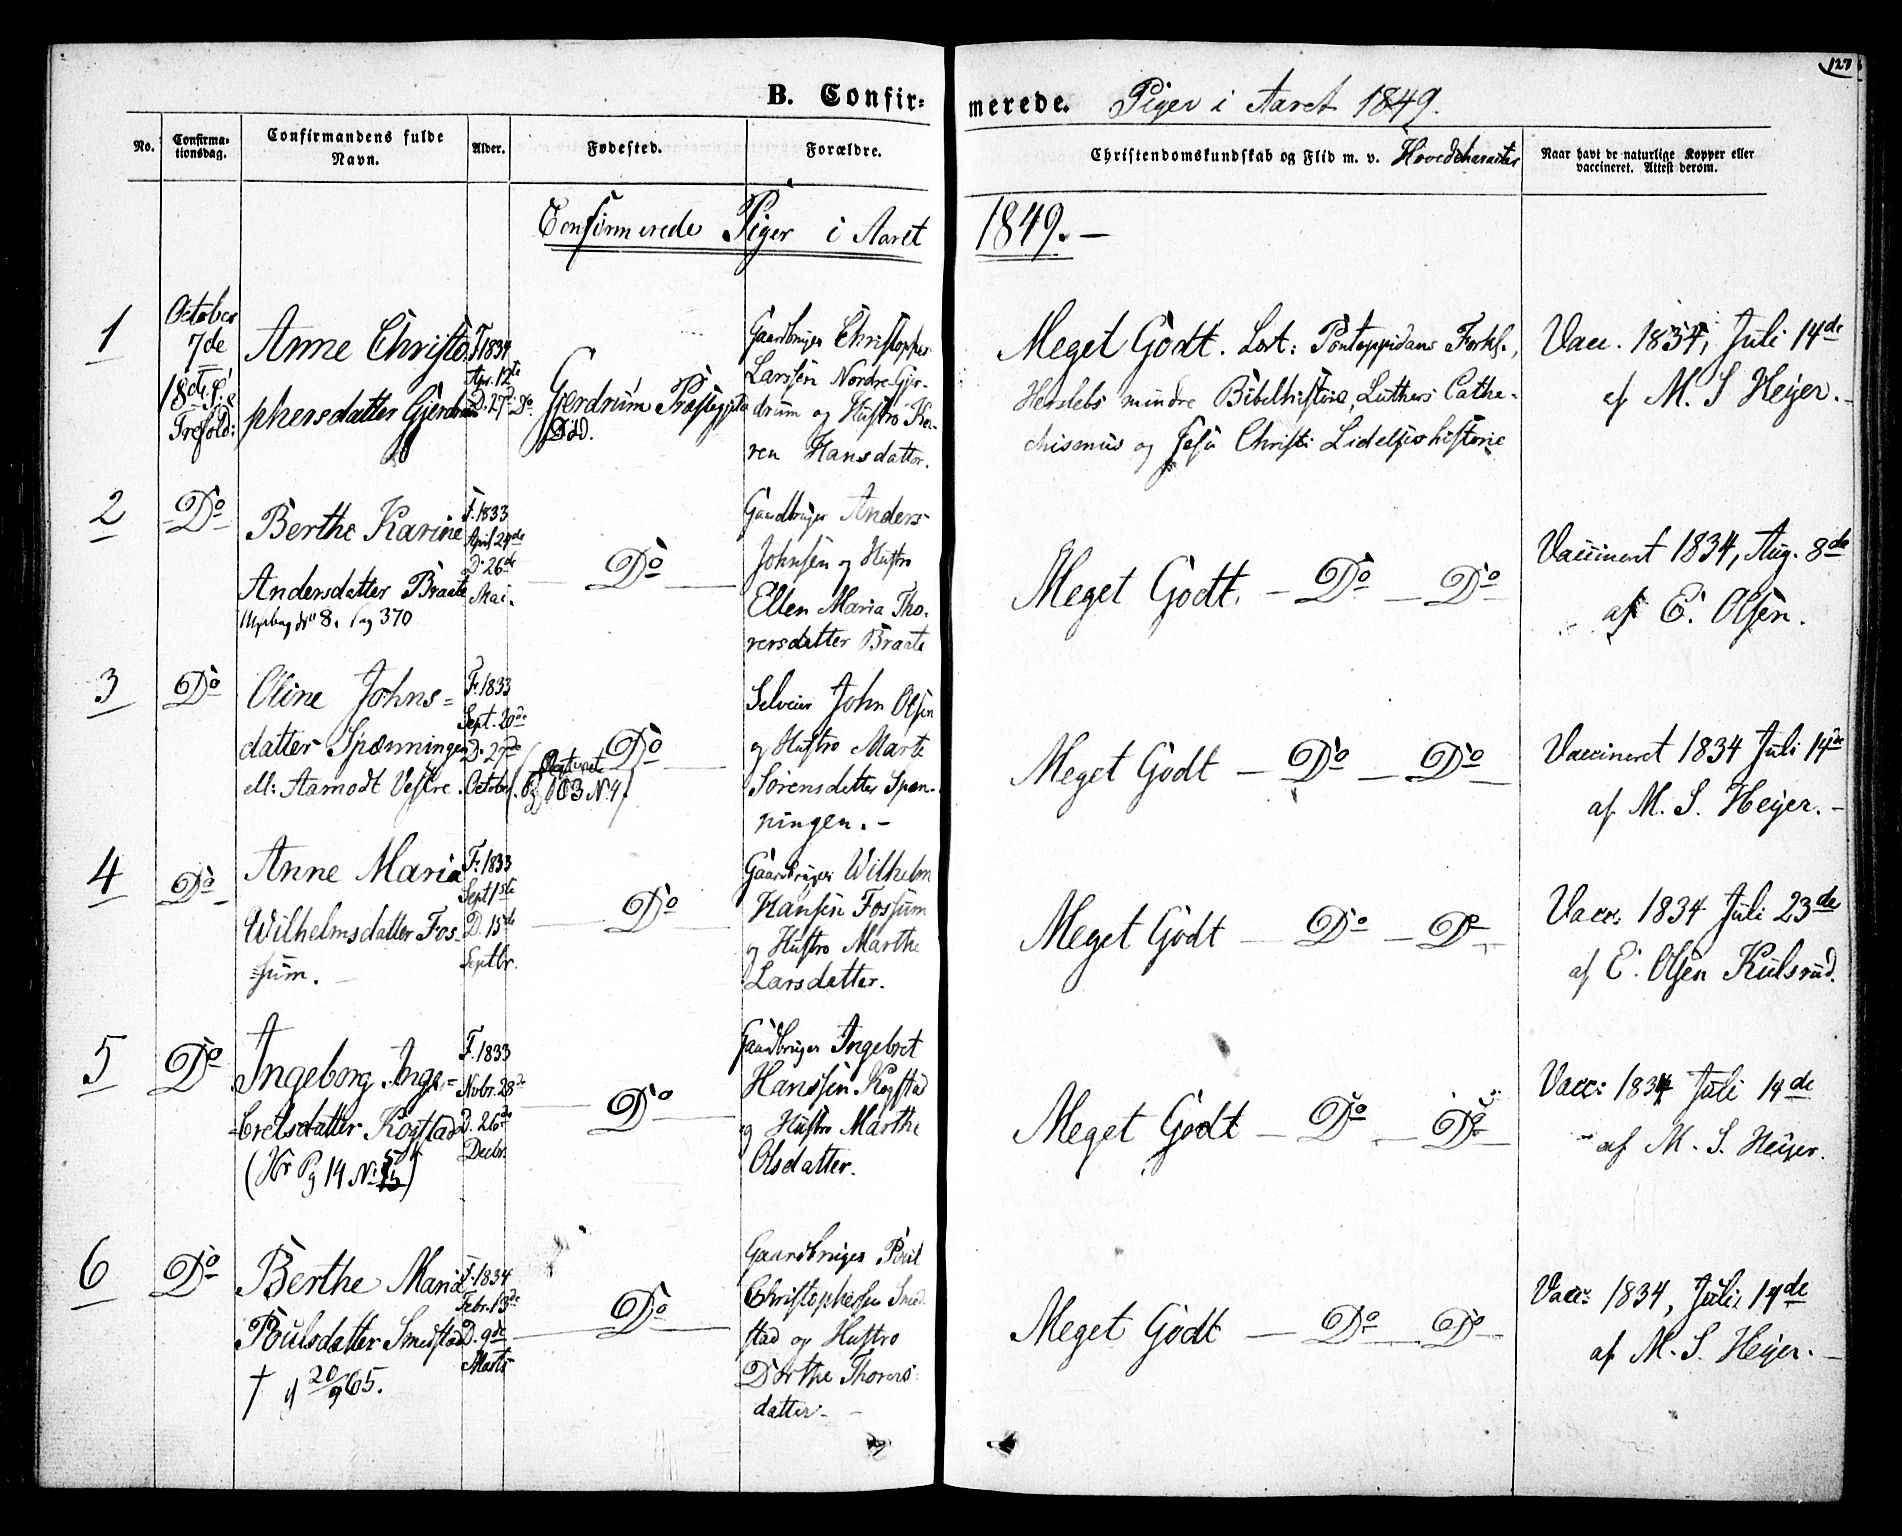 127
B. Confir=
merede. Piger i Aaret 1849.
No.
Confirma-
tionsdag.
Confirmandens fulde
Navn.
Alder.
Fødested.
Forældre.
Christendomskundskab og Flid m. v. Hovedcharacter
Naar havt de naturlige Kopper eller
vaccineret. Attest derom.
Confirmerede Piger i Aaret
1849. —
1
October
7de
18de S. e.
Trefold:
Anne Christo
phersdatter Gjerdrum
F. 1834
Apr. 12te
D. 27de Do
Gjerdrum Præstegjeld
Gaardbruger Christopher
Larssen Nordre Gjer-
drum og Hustro Ka-
ren Hansdatter.
Meget Godt. Læst: Pontoppidans Forkl.,
Herslebs mindre Bibelhistorie, Luthers Cathe-
chismus og Jesu Christi Lidelseshistorie
Vacc. 1834, Juli 14de
af M. S Heyer. -
2
Do
Berthe Karine
Andersdatter Braate
No 8. Pag 370
F. 1833
April 24de
D. 26de
Mai.
Do
Gaardbruger Anders
Johnsen og Hustro
Ellen Maria Tho-
rersdatter Braate
Meget Godt. - Do - Do
Vaccineret 1834, Aug. 8de
af E. Olsen.
3
Do
Oline Johns=
datter Spænningen
ell: Aamodt Vestre.
F. 1833
Sept. 20de
D. 27de
Octobr.
Do
(Pg 103 N 4)
Selveier John Olsen
og Hustro Marte
Sørensdatter Spæn-
ningen. -
Meget Godt - Do - Do
Vaccineret 1834 Juli 14de
af M. S. Heyer. -
4
Do
Anne Maria
Wilhelmsdatter Fos-
sum.
F. 1833
Sept 1ste
D. 15de
Septbr.
Do
Gaardbruger Wilhelm
Hansen Fossum
og Hustro Marthe
Larsdatter.
Meget Godt - Do - Do
Vacc: 1834 Juli 23de
af E. Olsen Kulsrud.
5
Do
Ingeborg Inge=
bretsdatter Kogstad
(Pg 14 N: 15)
F. 1833
Novbr. 28de
D. 26de
Decbr.
Do
Gaardbruger Ingebret
Hanssen Kogstad
og Hustro Marthe
Olsdatter.
Meget Godt - Do - Do
Vacc: 1834 Juli 14de
af M. S. Heyer.
6
Do
Berthe Maria
Poulsdatter Smedstad
† d 20/9 65.
F. 1834
Febr. 13de
D. 9de
Marts
Do
Gaardbruger Poul
Christophersen Smed-
stad og Hustro
Dorthe Thorers-
datter -
Meget Godt - Do - Do
Vacc: 1834, Juli 14de
af M. S. Heyer. -